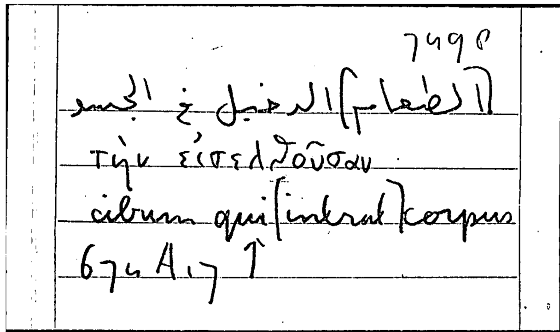 [الطعام] الدخيل في الجسد
τὴν εἰσελθοῦσαν
cibum qui [intrat] corpus